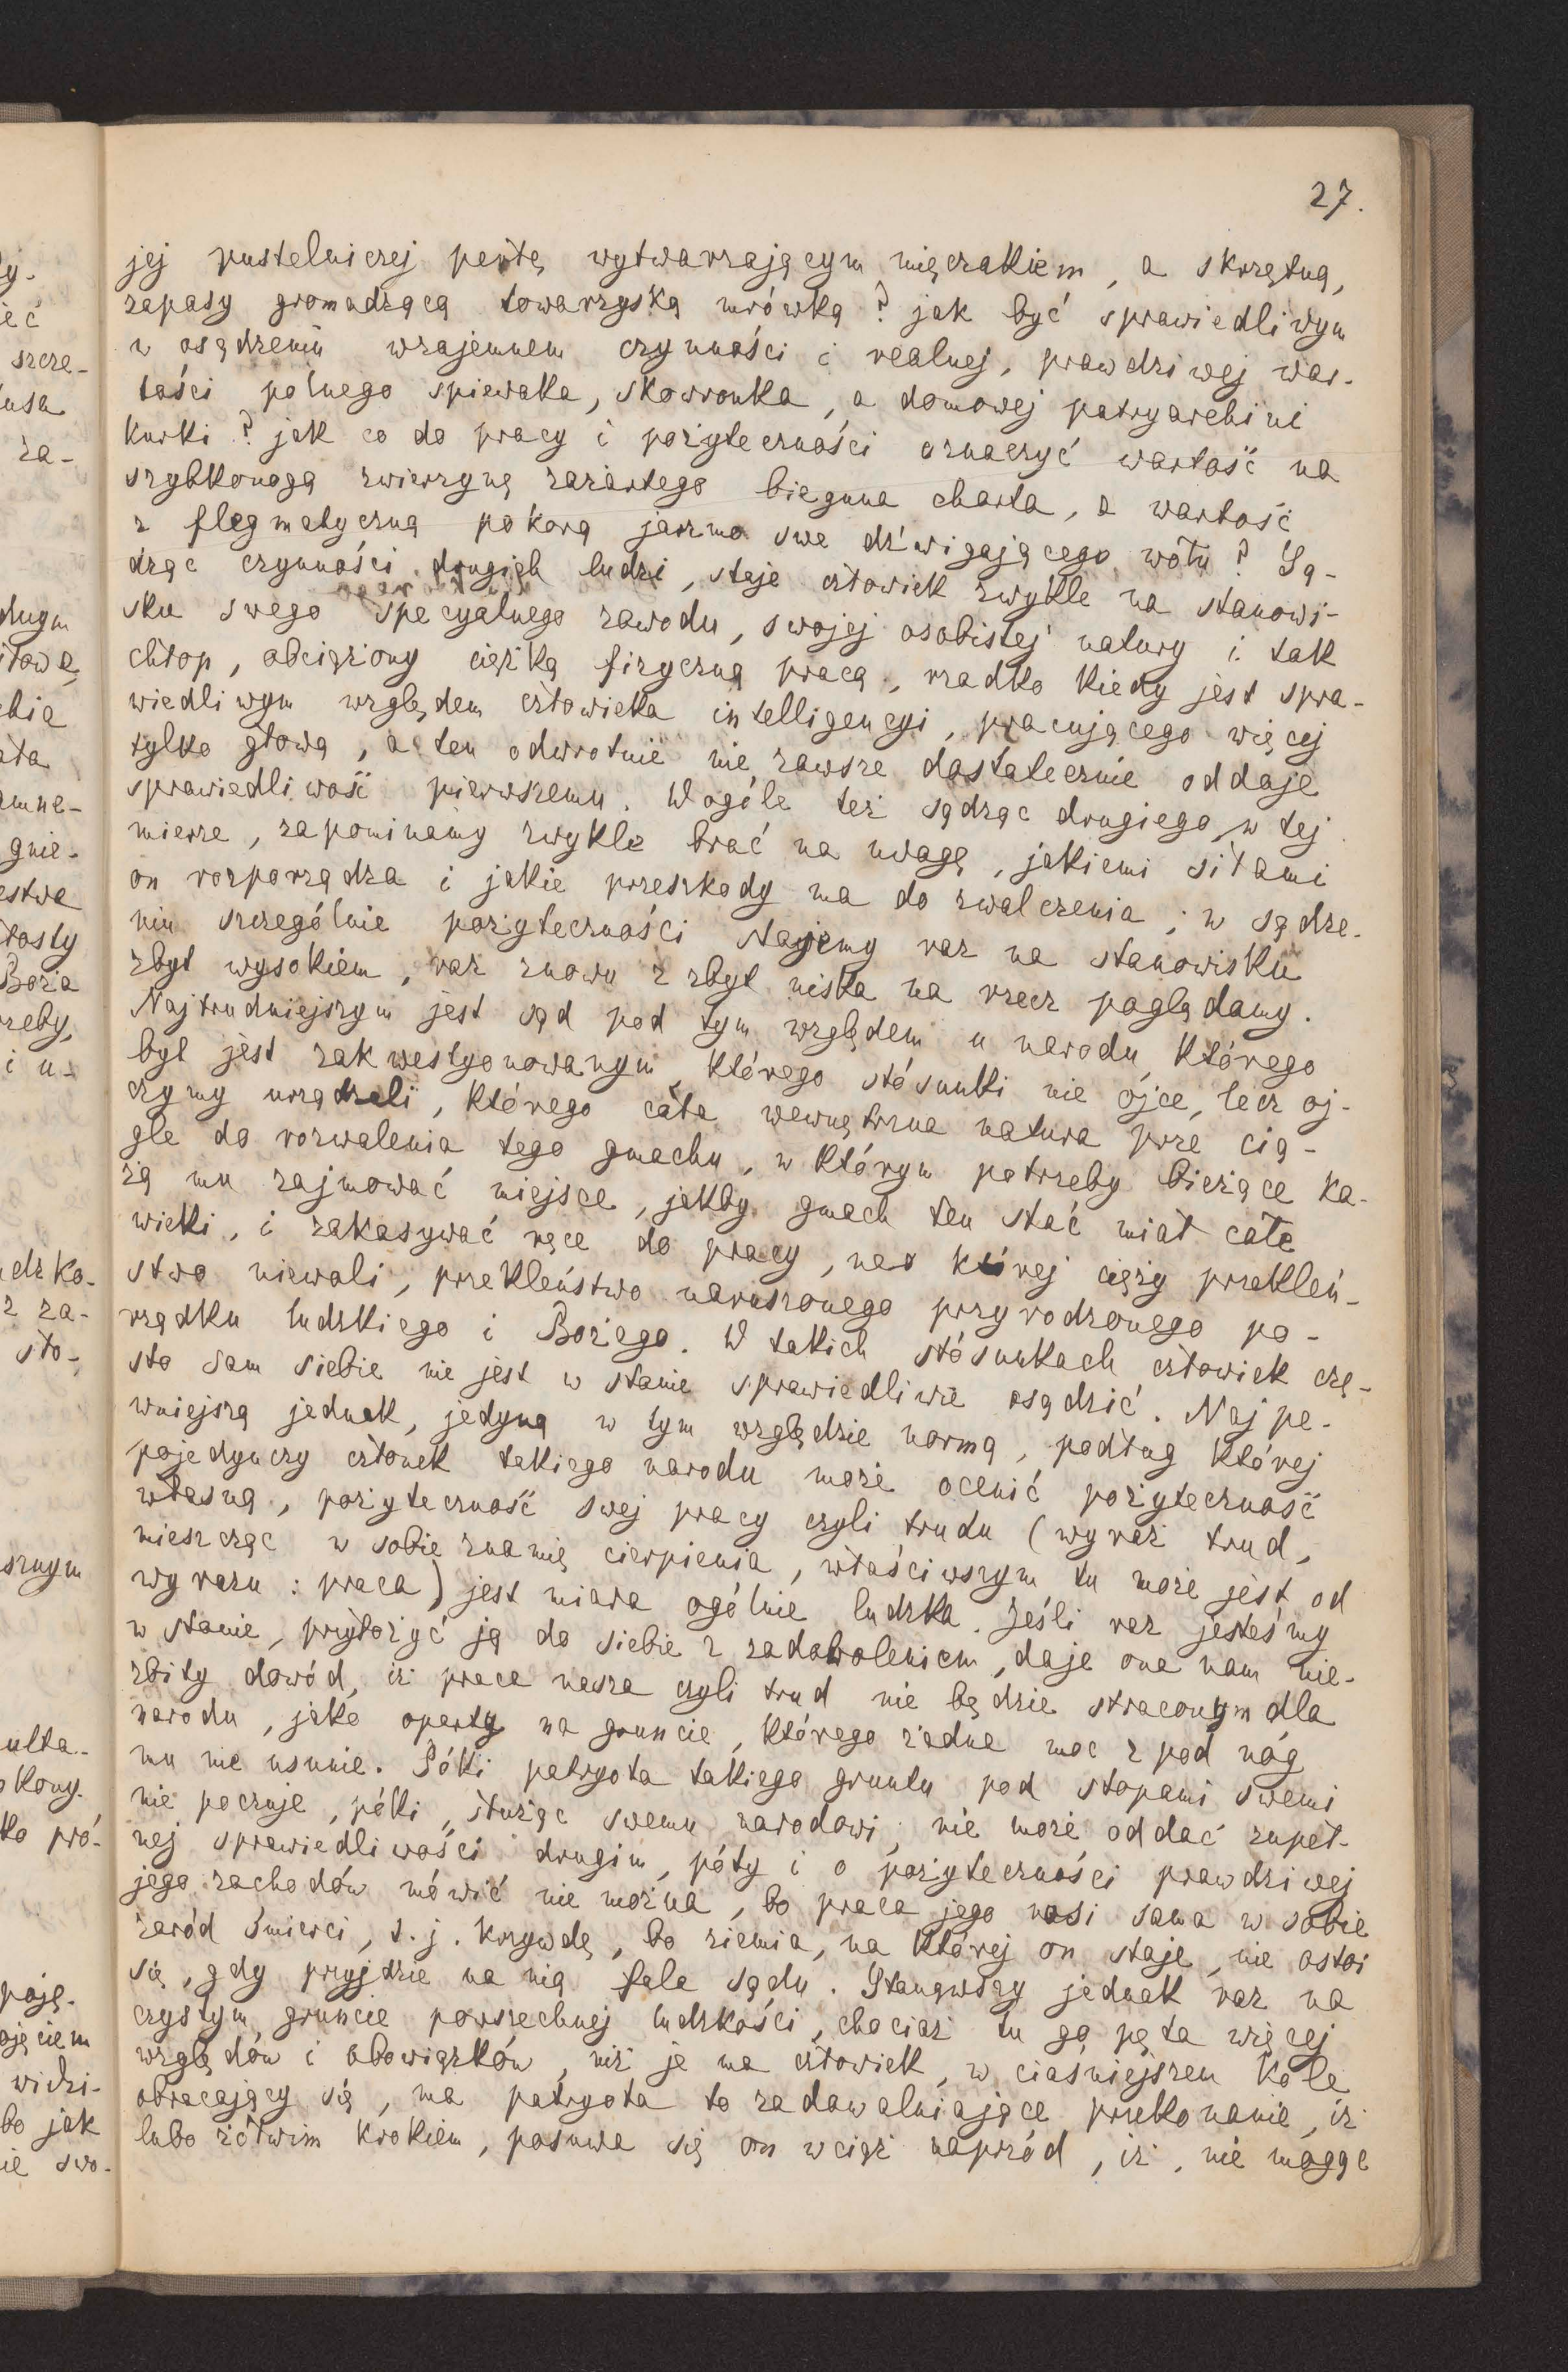 27.
jej pustelniczej perłę wytwarzającym mięczakiem, a skrzętną,
zapasy gromadzącą towarzyską mrówką? jak być sprawiedliwym
w osądzeniu wzajemnem czynności i realnej, prawdziwej war-
tości polnego spiewaka, skowronka, a domowej patryarchini
kurki? jak co do pracy i pożyteczności oznaczyć wartość na
szybkonogą zwierzynę zażartego bieguna charta, a wartość
z flegmatyczną pokorą jarzmo swe dźwigającego wołu? Są-
dząc czynności drugich ludzi, staje człowiek zwykle na stanowi-
sku swego specyalnego zawodu, swojej osobistej natury i tak
chłop, obciążony ciężką fizyczną pracą, rzadko kiedy jest spra-
wiedliwym względem człowieka intelligencyi, pracującego więcej
tylko głową, a ten odwrotnie nie zawsze dostatecznie oddaje
sprawiedliwość pierwszemu. Wogóle też sądząc drugiego w tej
mierze, zapominamy zwykle brać na uwagę, jakiemi siłami
on rozporządza i jakie przeszkody ma do zwalczenia; w sądze-
niu szczególnie pożyteczności stajemy raz na stanowisku
zbyt wysokiem, raz znowu z zbyt niska na rzecz poglądamy.
Najtrudniejszym jest sąd pod tym względem u narodu, którego
byt jest zakwestyonowanym, którego stósunki nie ojce, lecz oj-
czymy urządzali, którego cała wewnętrzna natura prze cią-
gle do rozwalenia tego gmachu, w którym potrzeby bieżące ka-
żą mu zajmować miejsce, jakby gmach ten stać miał całe
wieki, i zakasywać ręce do pracy, nad której cięży przekleń-
stwo niewoli, przekleństwo naruszonego przyrodzonego po-
rządku ludzkiego i Bożego. W takich stósunkach człowiek czę-
sto sam siebie nie jest w stanie sprawiedliwie osądzić. Najpe-
wniejszą jednak, jedyną w tym względzie normą, podług której
pojedynczy członek takiego narodu może ocenić pożyteczność
własną, pożyteczność swej pracy czyli trudu (wyraz trud,
mieszcząc w sobie znamię cierpienia, właściwszym tu może jest od
wyrazu: praca) jest miara ogólnie ludzka. Jeśli raz jesteśmy
w stanie, przyłożyć ją do siebie z zadowoleniem, daje ona nam nie-
zbity dowód, iż praca nasza czyli trud nie będzie straconym dla
narodu, jako oparty na gruncie, którego żadna moc z pod nóg
mu nie usunie. Póki patryota takiego gruntu pod stopami swemi
nie poczuje, póki, służąc swemu narodowi, nie może oddać zupeł-
nej sprawiedliwości drugim, póty i o pożyteczności prawdziwej
jego zachodów mówić nie można, bo praca jego nosi sama w sobie
zaród śmierci, t. j. krzywdę, bo ziemia, na której on staje, nie ostoi
się, gdy przyjdzie na nią fala sądu. Stanąwszy jednak raz na
czystym gruncie powszechnej ludzkości, chociaż tu go pęta więcej
względów i obowiązków, niż je ma człowiek, w ciaśniejszem kole
obracający się, ma patryota to zadawalniające przekonanie, iż
lubo żółwim krokiem, posuwa się on wciąż naprzód, iż, nie mogąc